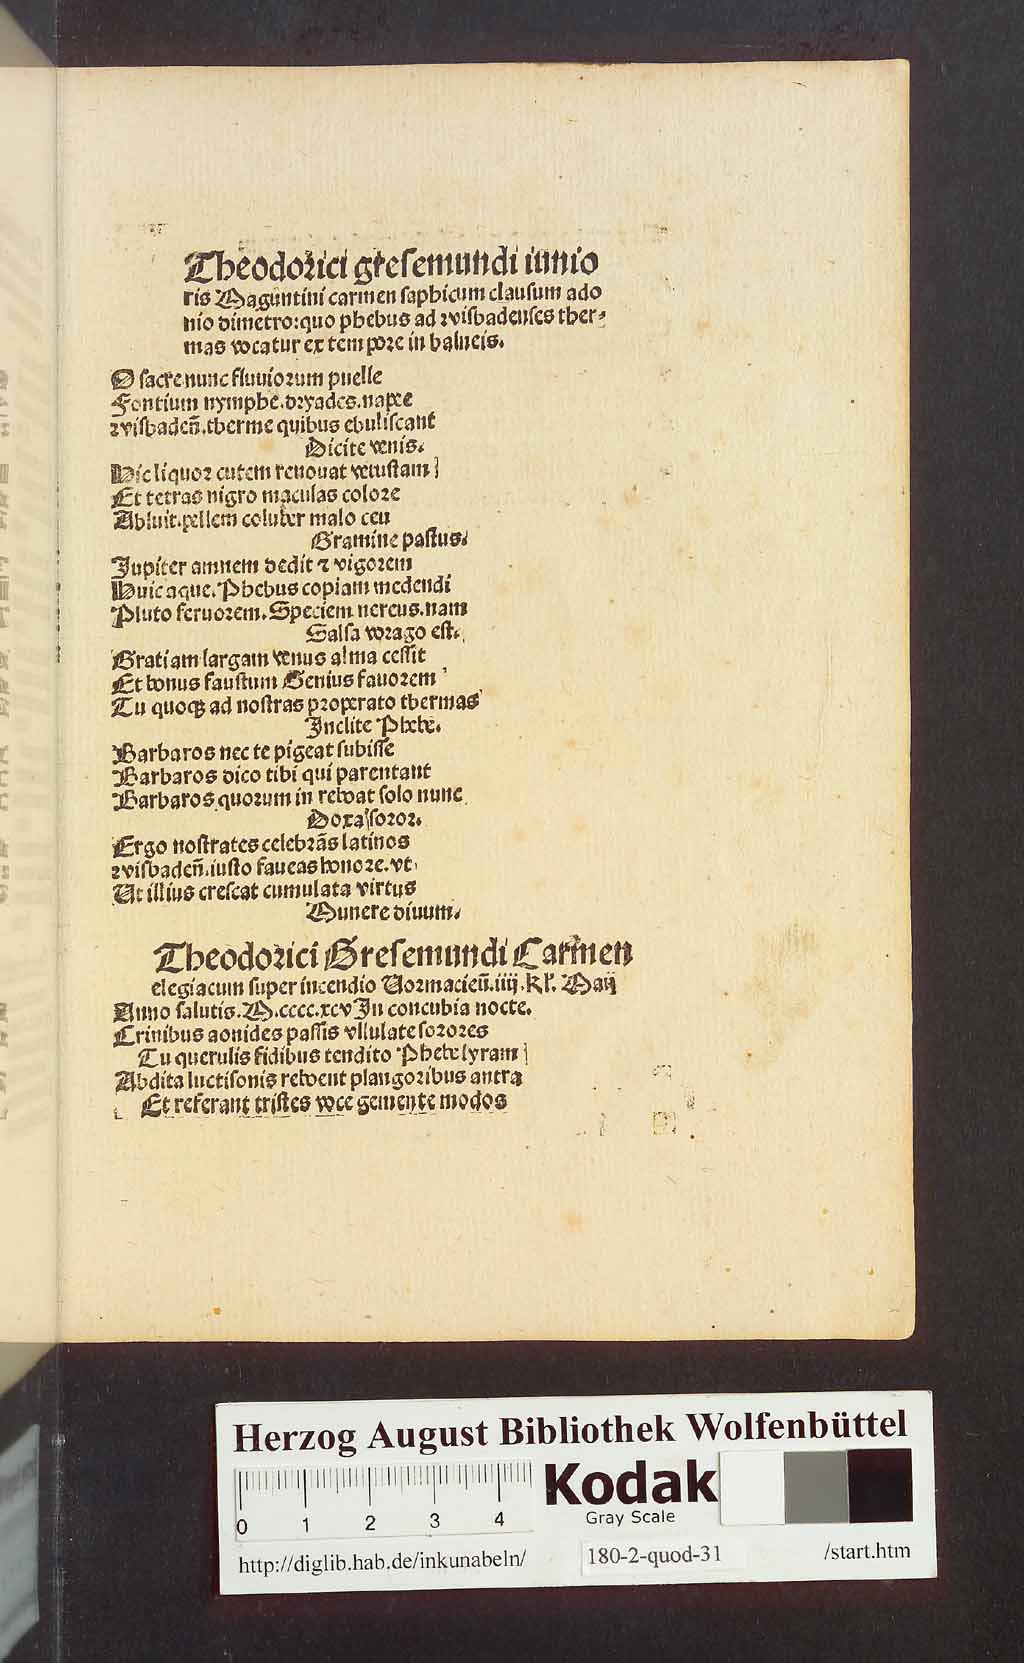 Theodorici gresemundi iunio
ris Maguntini carmen saphicum clausum ado
nio dimetro: quo phebus ad wisbadenses ther-
mas vocatur ex tempore in balneis.
O sacre nunc fluuiorum puelle
Fontium nymphe. dryades. napee
wisbadeñ. therme quibus ebuliscant
Dicite venis.
Hic liquor cutem renouat vetustam
Et tetras nigro maculas colore
Abluit. pellem coluber malo ceu
Gramine pastus.
Jupiter amnem dedit ⁊ vigorem
Huic aque. Phebus copiam medendi
Pluto feruorem. Speciem nereus. nam
Salsa vorago est.
Gratiam largam venus alma cessit
Et bonus faustum Genius fauorem
Tu quoqꝫ ad nostras properato thermas
Inclite Phebe.
Barbaros nec te pigeat subisse
Barbaros dico tibi qui parentant
Barbaros quorum in reboat solo nunc
Doxa soror.
Ergo nostrates celebrãs latinos
wisbadeñ. iusto faueas honore. vt
Ut illius crescat cumulata virtus
Munere diuum.
Theodorici Gresemundi Carmen
elegiacum super incendio Uormacieñ. iiij. kl'. Maij
Anno salutis. M.cccc.xcv In concubia nocte.
Crinibus aonides passis vllulate sorores
Tu querulis fidibus tendito Phebe lyram
Abdita luctisonis reboent plangoribus antra
Et referant tristes voce gemente modos
Herzog August Bibliothek Wolfenbüttel
0 1 2 3 4
Kodak
Gray Scale
http://diglib.hab.de/inkunabeln/ 180-2-quod-31 /start.htm